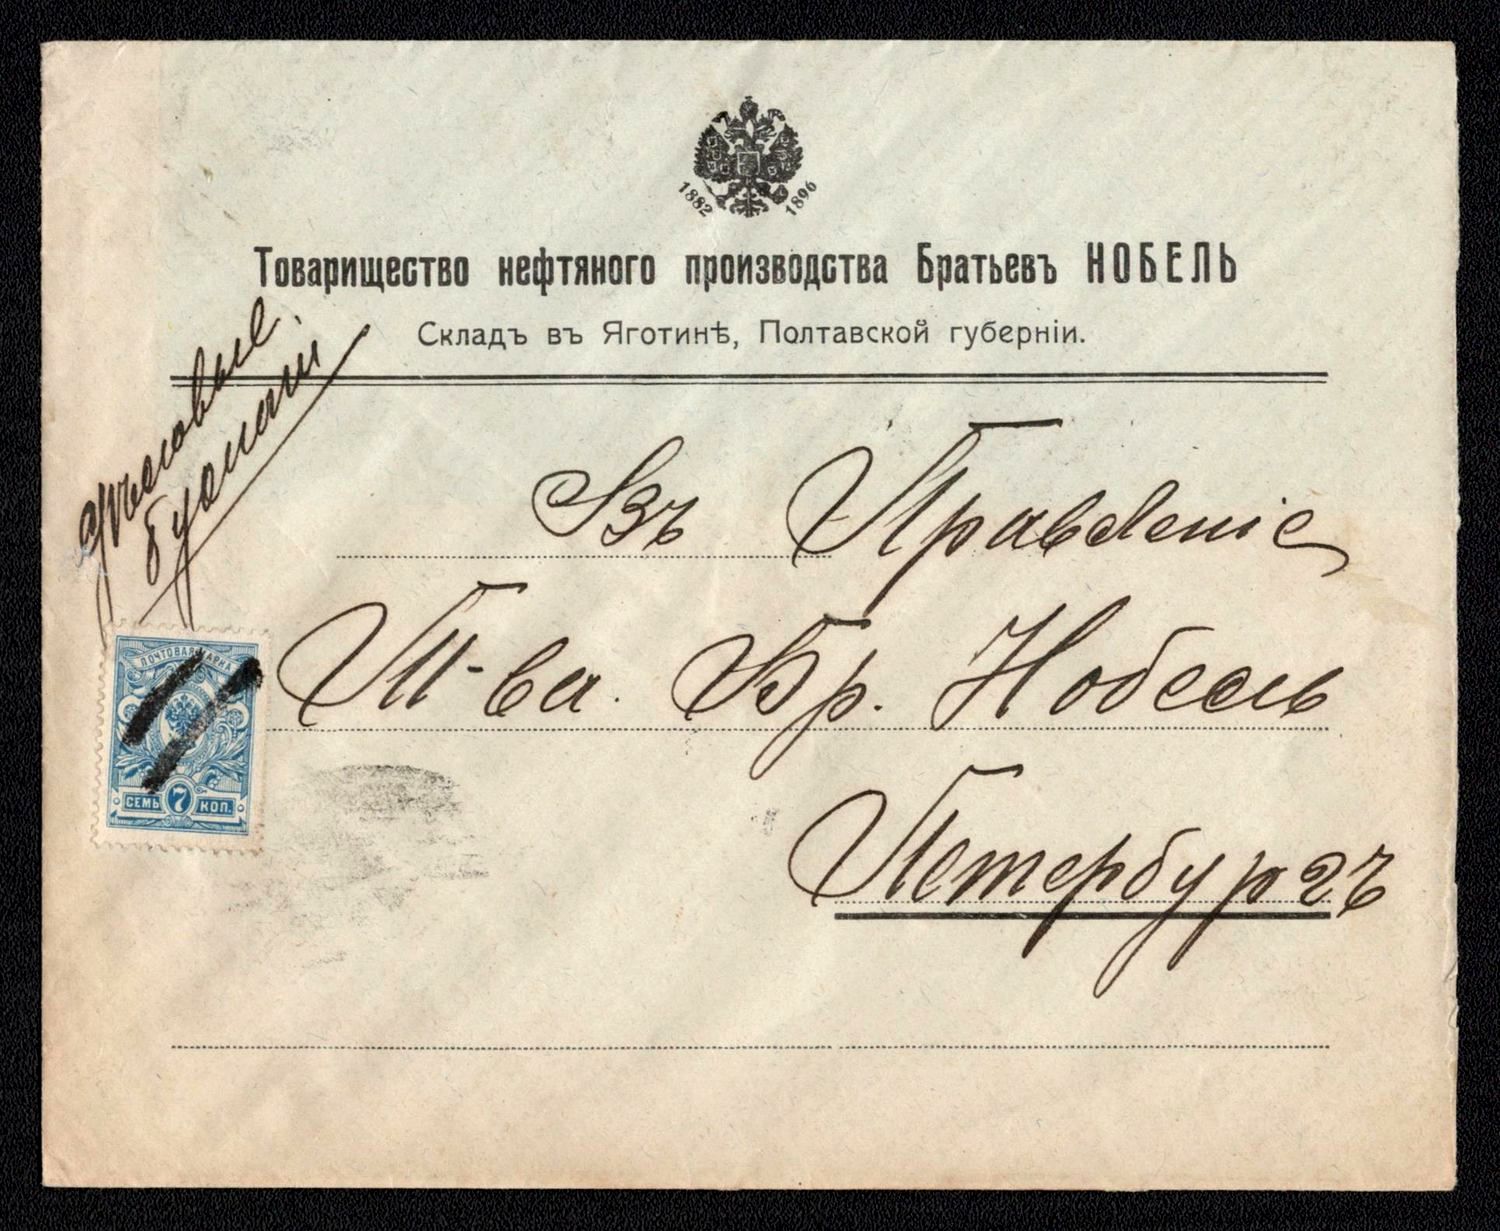 1882 1896
Товарищество нефтяного производства Братьевъ НОБЕЛЬ
Складъ въ Яготинѣ, Полтавской губерніи.
Дѣловые
бумаги
Въ Правленіе
Т-ва Бр. Нобель
Петербургъ
ПОЧТОВАЯ МАРКА
СЕМЬ 7 КОП.